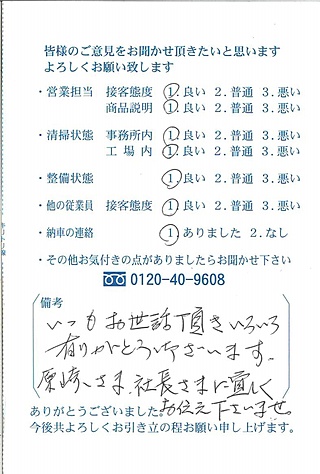 皆様のご意見をお聞かせ頂きたいと思います
よろしくお願い致します
・営業担当 接客態度 1.良い 2.普通 3.悪い
商品説明 1.良い 2.普通 3.悪い
・清掃状態 事務所内 1.良い 2.普通 3.悪い
工場内 1.良い 2.普通 3.悪い
・整備状態 1.良い 2.普通 3.悪い
・他の従業員 接客態度 1.良い 2.普通 3.悪い
・納車の連絡 1.ありました 2.なし
・その他お気付きの点がありましたらお聞かせ下さい
0120-40-9608
備考
いつもお世話頂きいろいろ
有りがとうございます。
原崎さま、社長さまに宜しく
お伝え下さいませ。
ありがとうございました。
今後共よろしくお引き立の程お願い申し上げます。